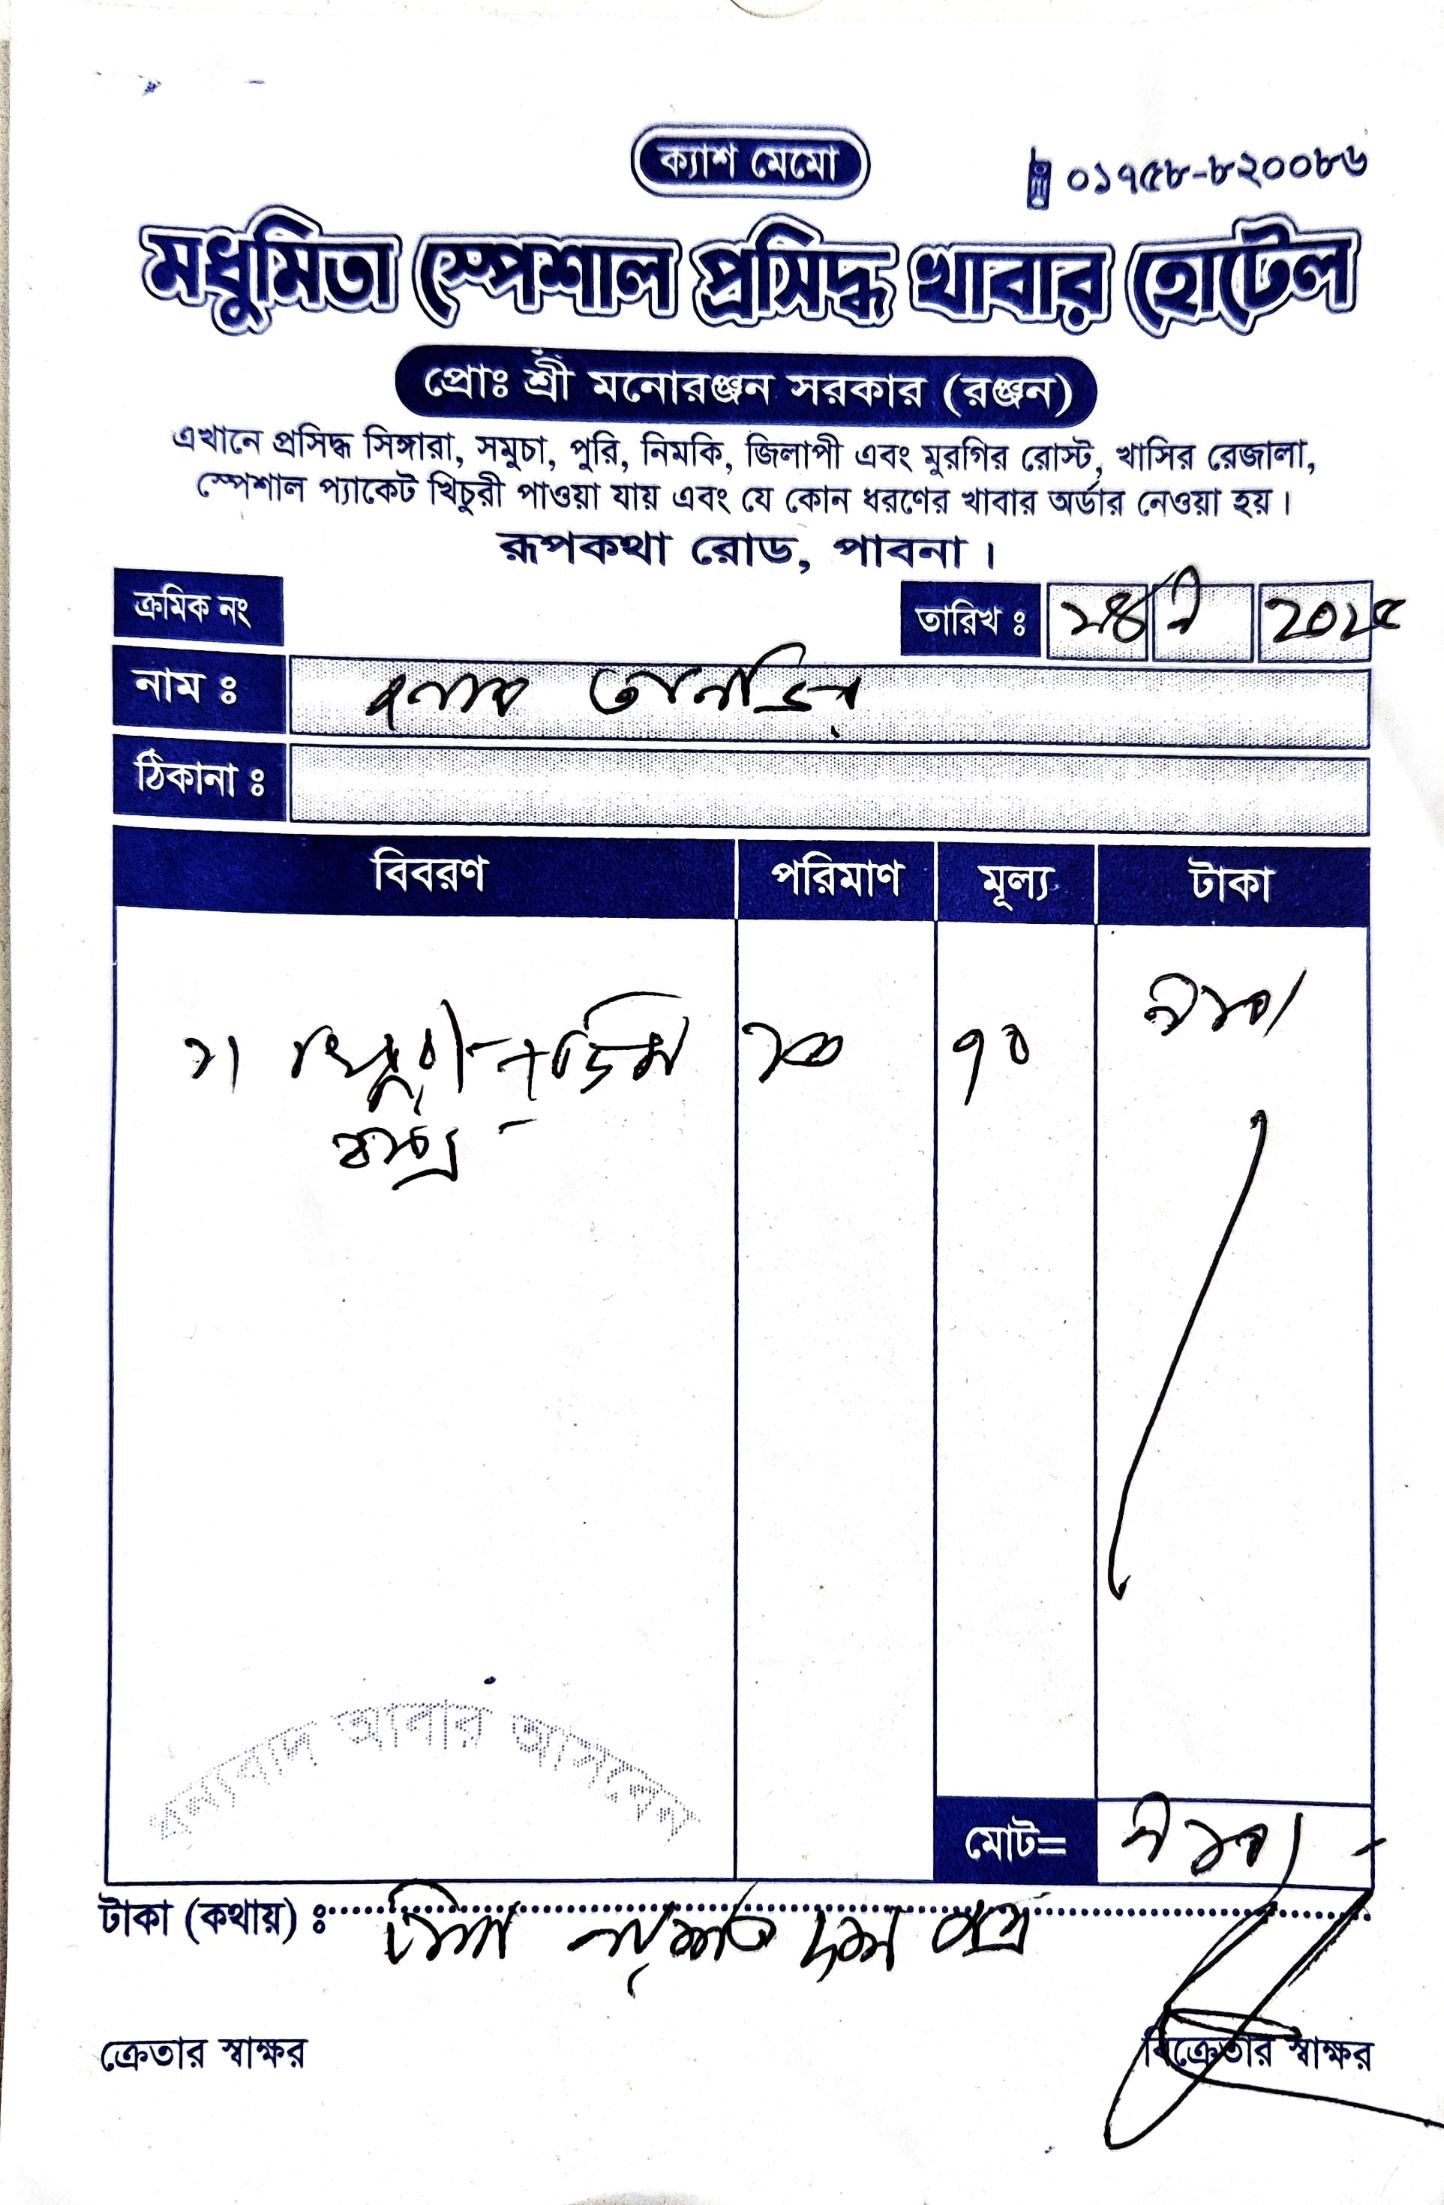 ক্যাশ মেমো
০১৭৫৮-৮২০০৮৬
মধুমিতা স্পেশাল প্রসিদ্ধ খাবার হোটেল
প্রোঃ শ্রী মনোরঞ্জন সরকার (রঞ্জন)
এখানে প্রসিদ্ধ সিঙ্গারা, সমুচা, পুরি, নিমকি, জিলাপী এবং মুরগির রোস্ট, খাসির রেজালা,
স্পেশাল প্যাকেট খিচুরী পাওয়া যায় এবং যে কোন ধরণের খাবার অর্ডার নেওয়া হয়।
রূপকথা রোড, পাবনা।
ক্রমিক নং
তারিখ ঃ
নাম ঃ জনাব
ঠিকানা ঃ
বিবরণ পরিমাণ মূল্য টাকা
১। ৭০
ধন্যবাদ আবার আসবেন
মোট=
টাকা (কথায়) ঃ মাত্র
ক্রেতার স্বাক্ষর
বিক্রেতার স্বাক্ষর